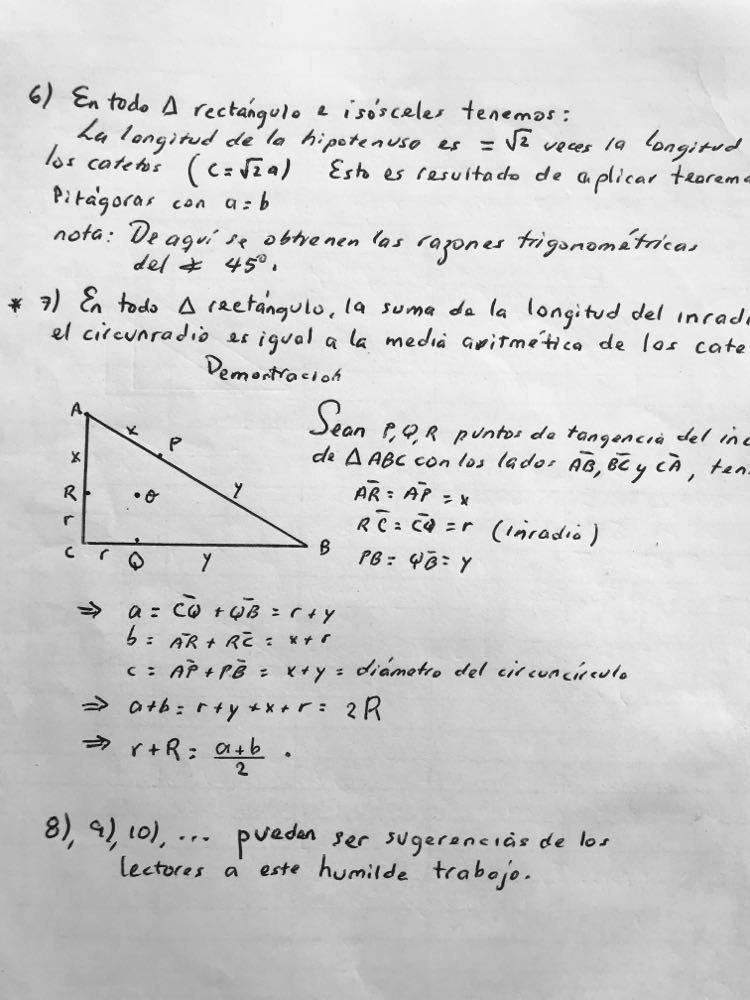 6) En todo Δ rectángulo e isósceles tenemos:
La longitud de la hipotenusa es = √2 veces la longitud
los catetos (c=√2a) Esto es resultado de aplicar teorema
Pitágoras con a=b
nota: De aquí se obtienen las razones trigonométricas
del ∡ 45°.
* 7) En todo Δ rectángulo, la suma de la longitud del inradi
el circunradio es igual a la media aritmética de los cate
Demostración
A
x
P
x
R
θ
y
r
C
r
Q
y
B
Sean P,Q,R puntos de tangencia del inc
de ΔABC con los lados A̅B̅, B̅C̅ y C̅A̅, ten
A̅R̅ = A̅P̅ = x
R̅C̅ = C̅Q̅ = r (inradio)
PB = Q̅B̅ = y
⇒ a = C̅Q̅ + Q̅B̅ = r+y
b = A̅R̅ + R̅C̅ = x+r
c = A̅P̅ + P̅B̅ = x+y = diámetro del circuncírculo
⇒ a+b = r+y+x+r = 2R
⇒ r+R = a+b/2.
8), 9), 10), ... pueden ser sugerencias de los
lectores a este humilde trabajo.